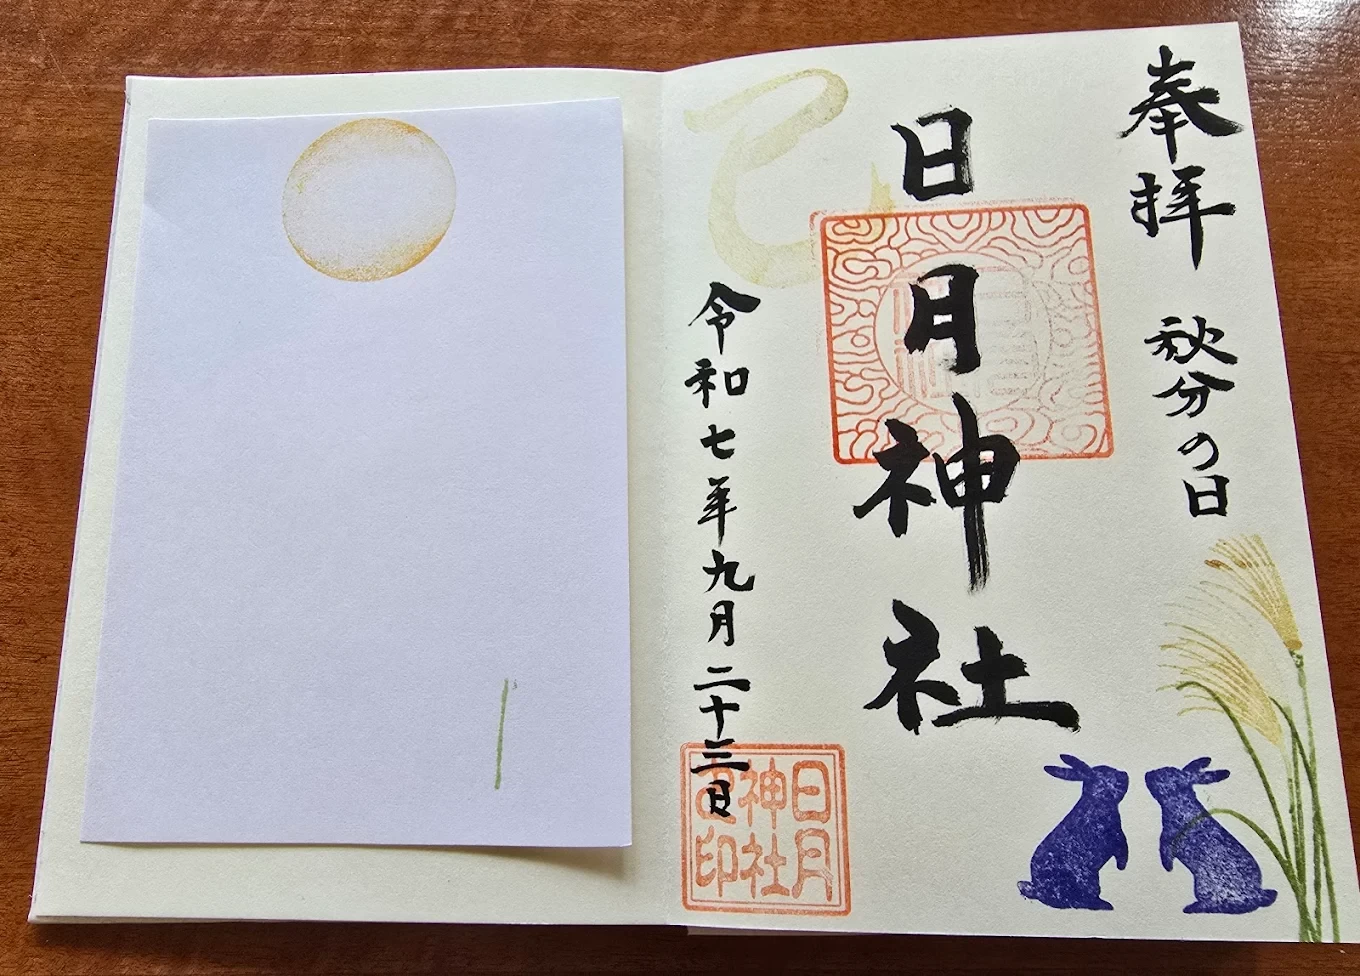 奉拝
秋分の日
日月神社
令和七年九月二十三日
巳
日月
神社
之印